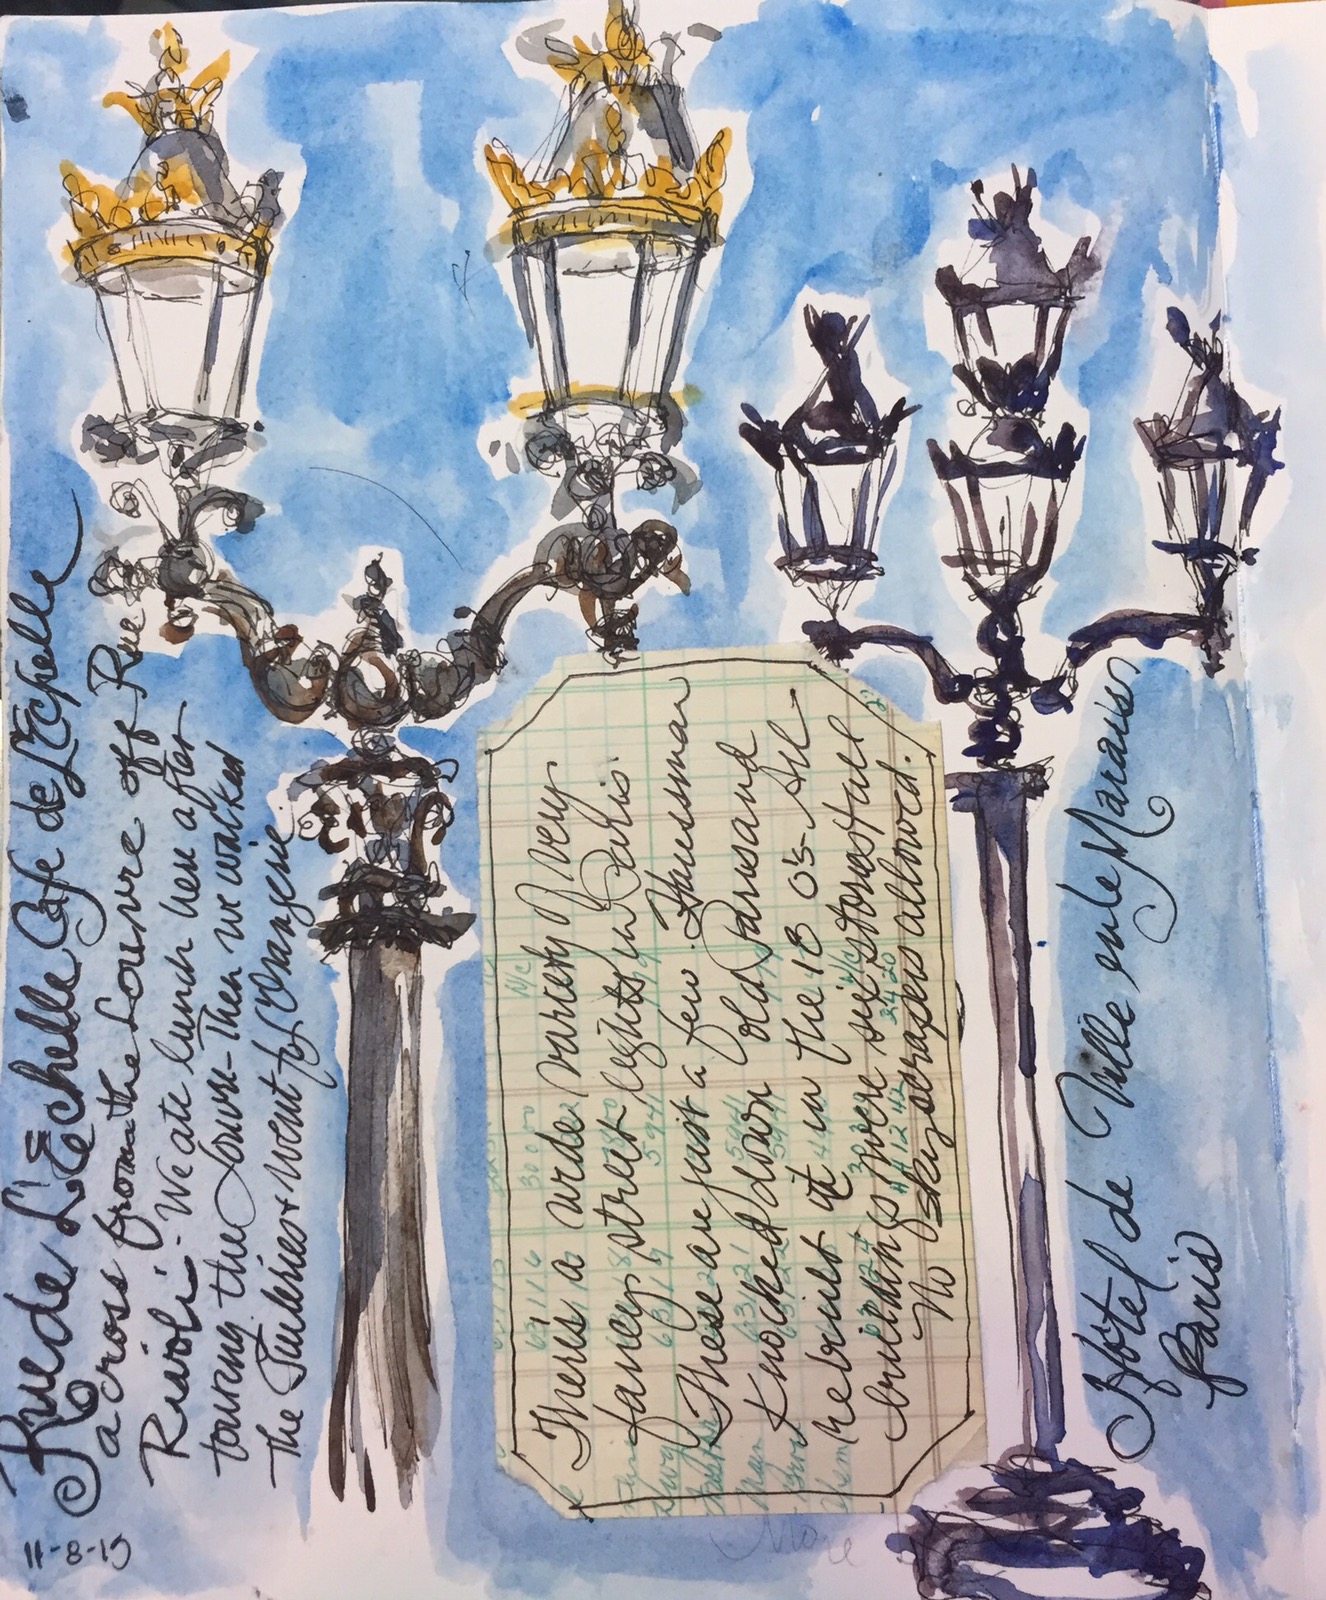 Rue de L'Echelle Cafe de L'Echelle
across from the Louvre off Rue
Rivoli - We ate lunch here after
touring the Louvre - Then we walked
the Tuileries & went to L'Orangerie
11-8-15
There's a wide variety of very
fancy street lights in Paris.
These are just a few. Haussman
Knocked down old Paris and
rebuilt it in the 18 0's - All
buildings were six stories tall
No skyscrapers allowed!
More
Hotel de Ville en le Marais
Paris